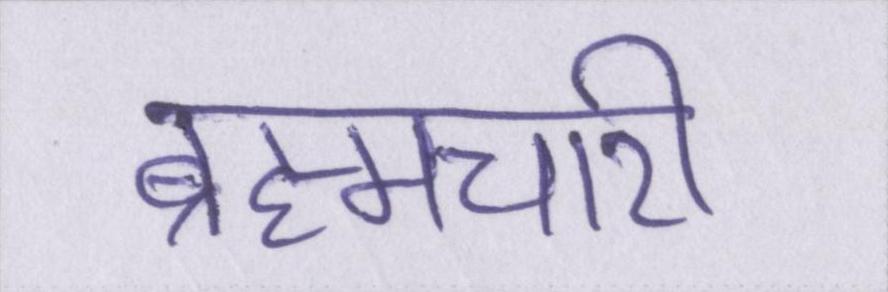 ब्रह्मचारी